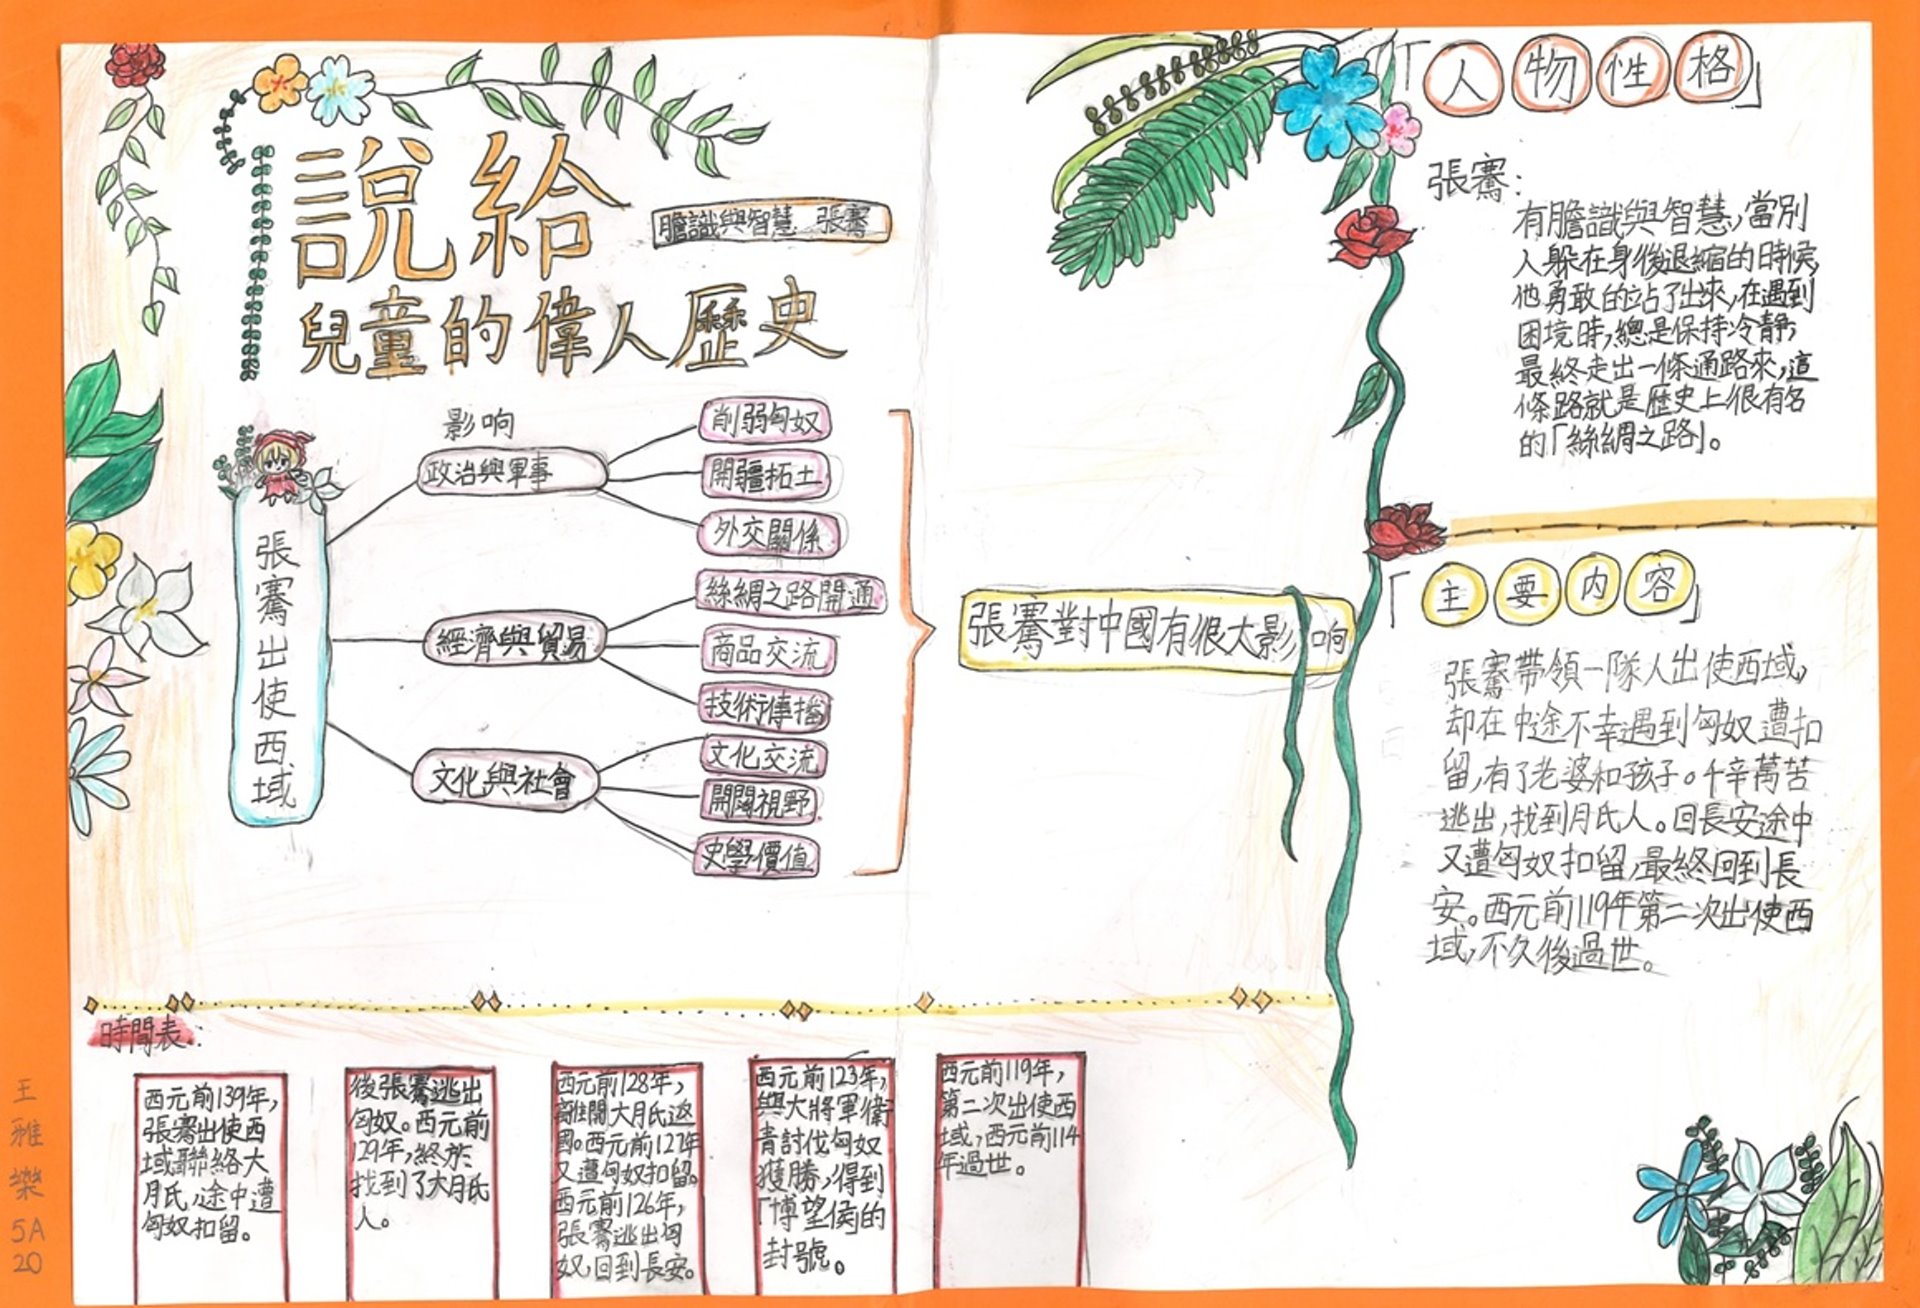 說給
兒童的偉人歷史
膽識與智慧 張騫
張騫出使西域
影响
政治與軍事
削弱匈奴
開疆拓土
外交關係
經濟與貿易
絲綢之路開通
商品交流
技術傳播
文化與社會
文化交流
開闊視野
史學價值
張騫對中國有很大影响
「人物性格」
張騫：
有膽識與智慧，當別
人躲在身後退縮的時候，
他勇敢的站了出來，在遇到
困境時，總是保持冷靜，
最終走出一條通路來，這
條路就是歷史上很有名
的「絲綢之路」。
「主要内容」
張騫帶領一隊人出使西域，
却在中途不幸遇到匈奴遭扣
留，有了老婆和孩子。千辛萬苦
逃出，找到月氏人。回長安途中
又遭匈奴扣留，最終回到長
安。西元前119年第二次出使西
域，不久後過世。
時間表：
西元前139年，
張騫出使西
域聯絡大
月氏，途中遭
匈奴扣留。
後張騫逃出
匈奴。西元前
129年，終於
找到了大月氏
人。
西元前128年，
離開大月氏返
國。西元前127年
又遭匈奴扣留。
西元前126年，
張騫逃出匈
奴，回到長安。
西元前123年，
與大將軍衛
青討伐匈奴
獲勝，得到
「博望侯」的
封號。
西元前119年，
第二次出使西
域，西元前114
年過世。
王雅樂
5A
20